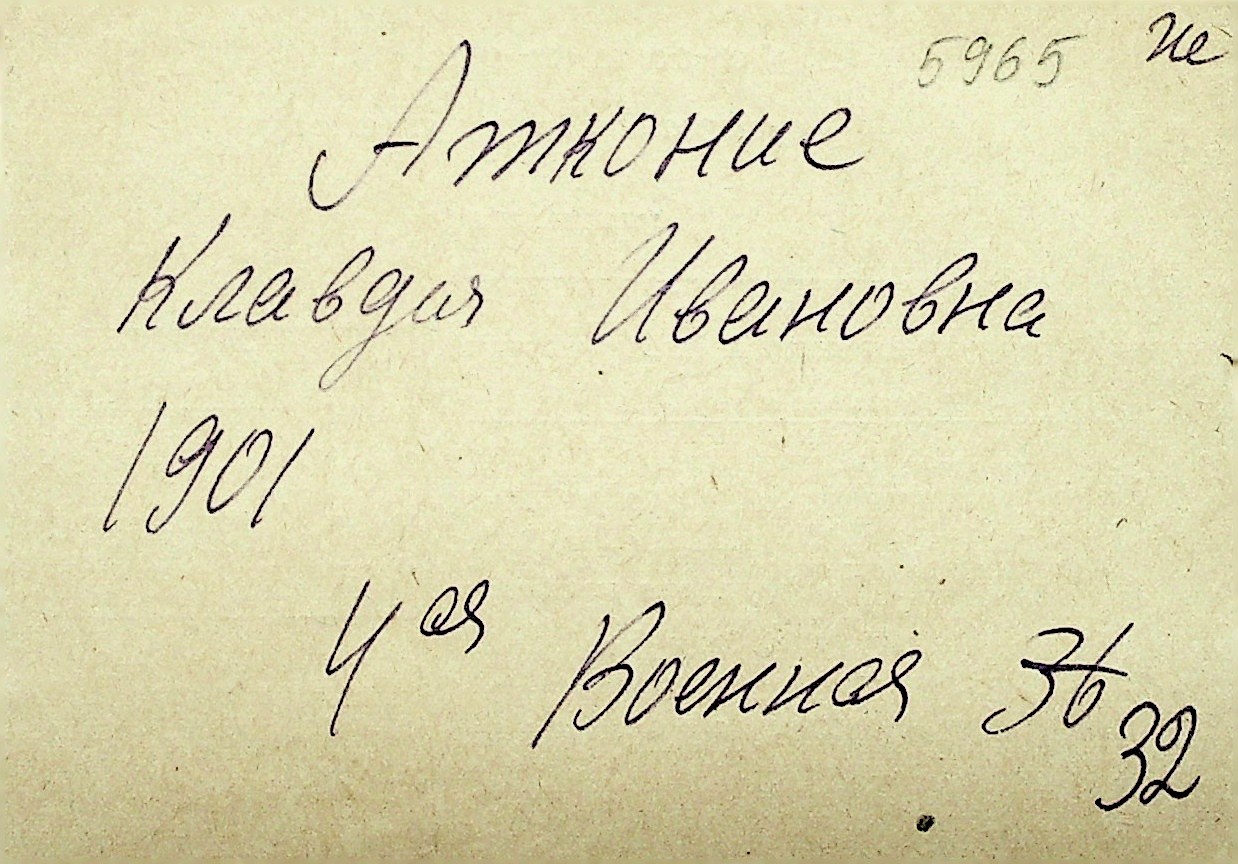 5965 Не
Атконие
Клавдия Ивановна
1901
4ая Военная 36
32